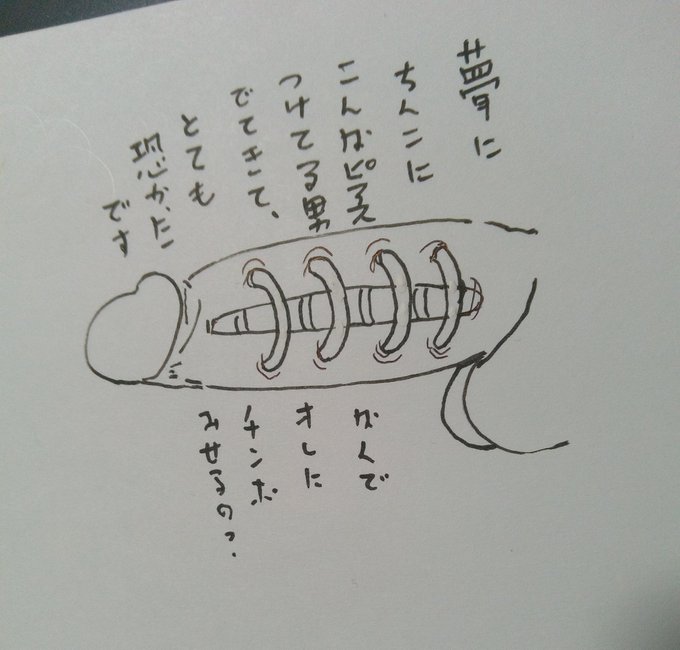 夢に
ちんこに
こんなピアス
つけてる男
でてきて、
とても
恐かった
です
なんで
オレに
チンポ
みせるの?